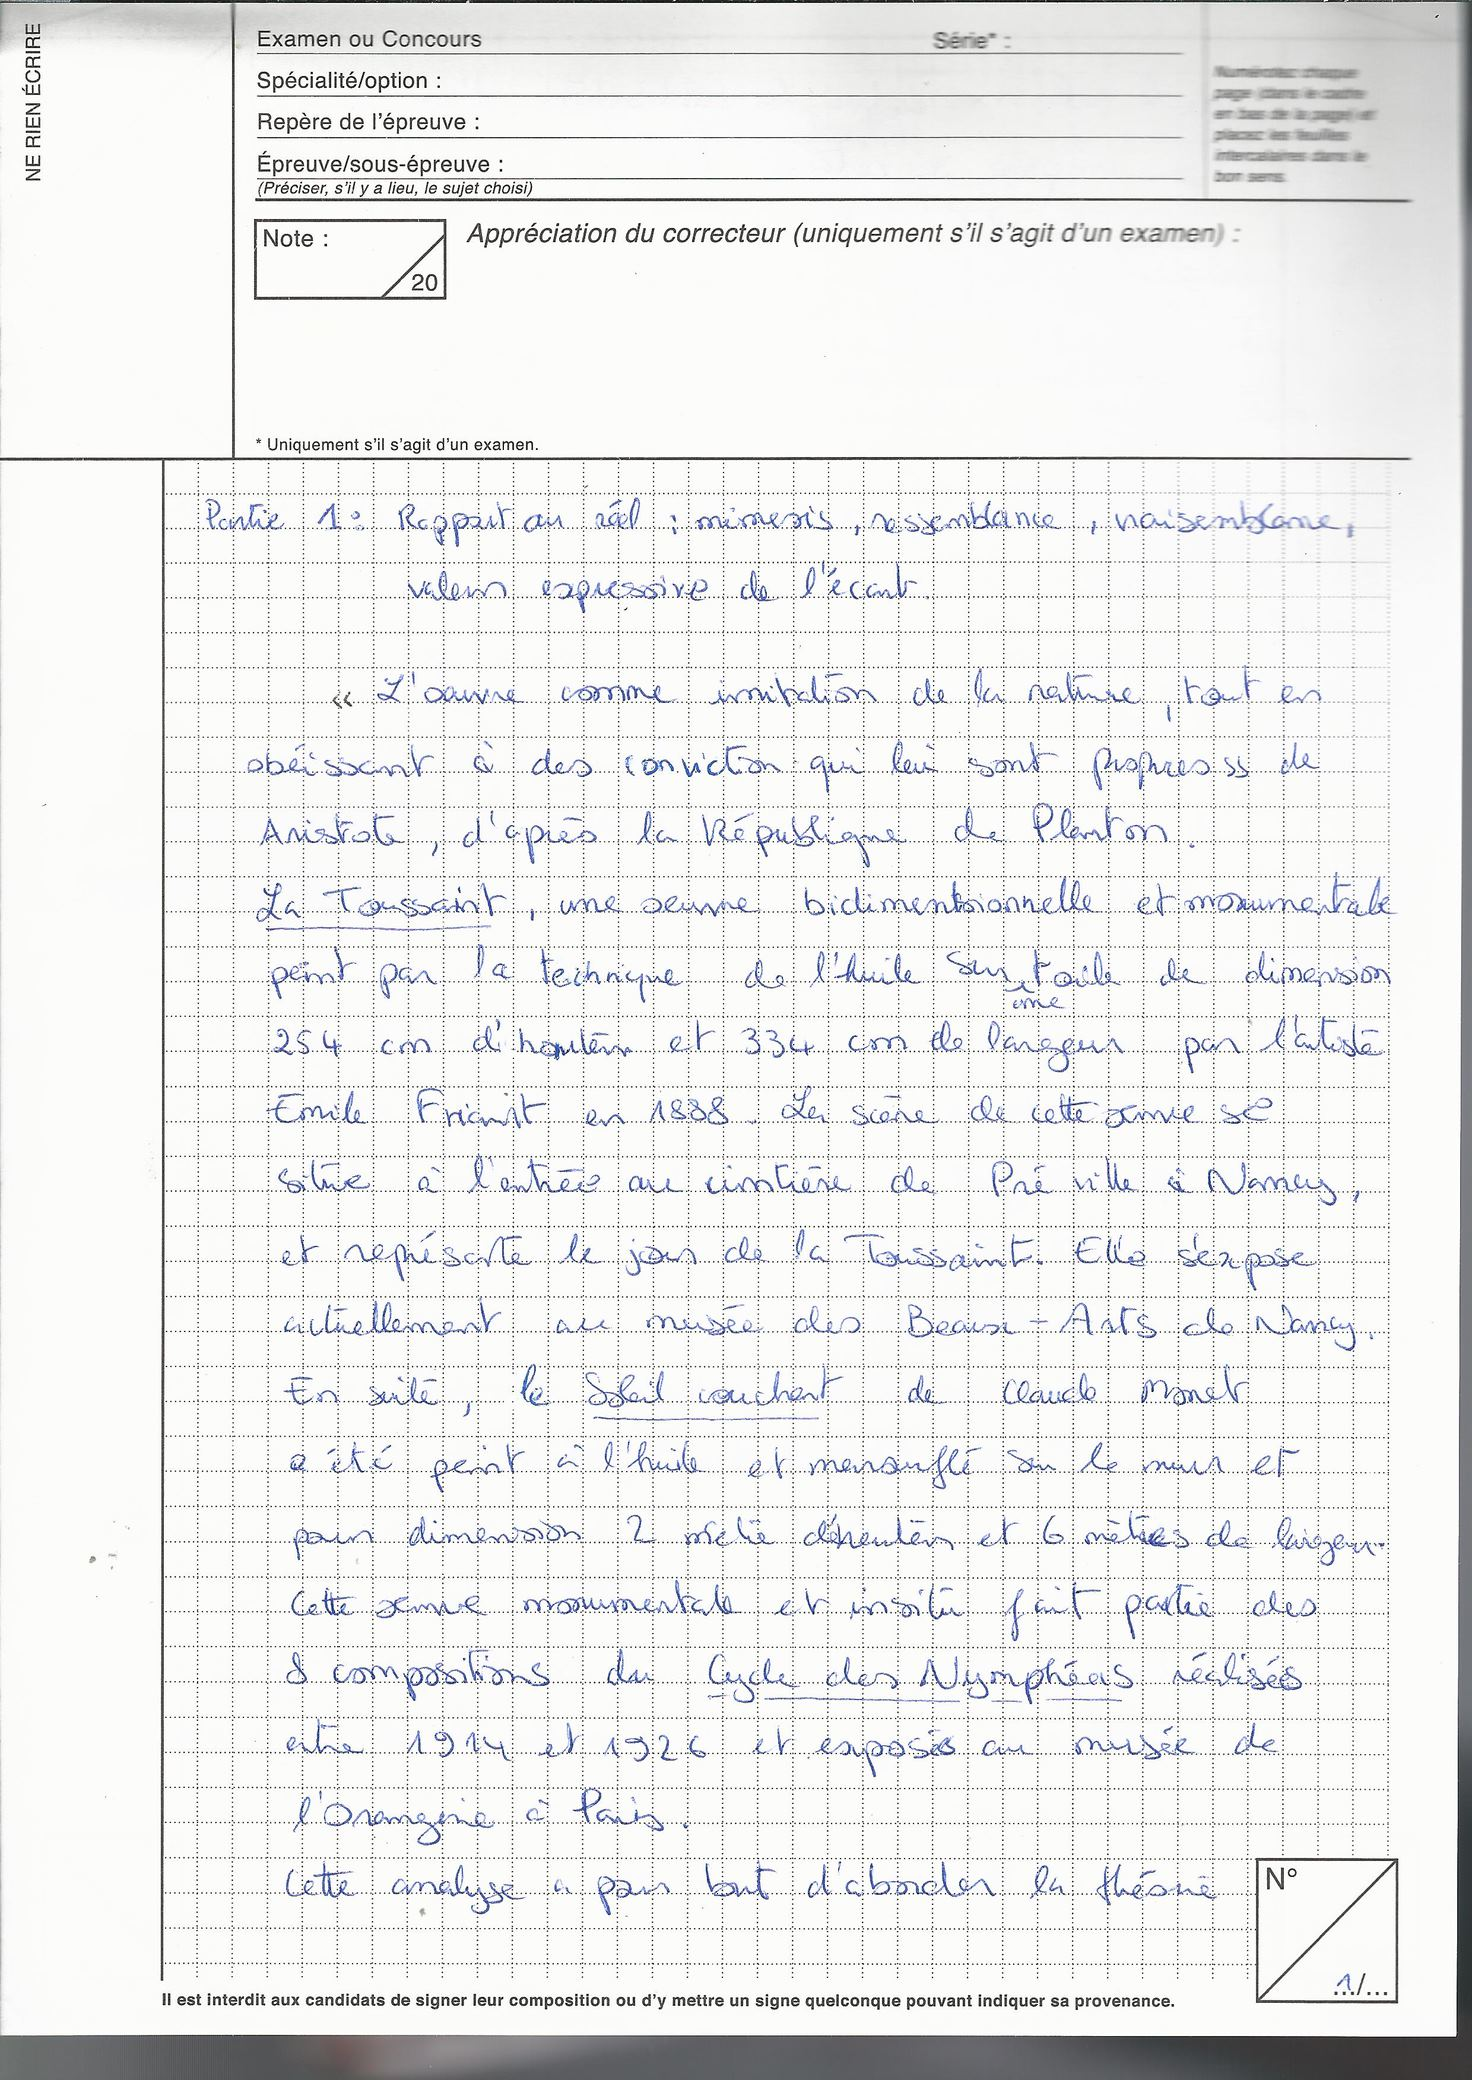 NE RIEN ÉCRIRE
Examen ou Concours Série* :
Spécialité/option :
Repère de l'épreuve :
Épreuve/sous-épreuve :
(Préciser, s'il y a lieu, le sujet choisi)
Numérotez chaque
page (dans le cadre
en bas de la page) et
placez les feuilles
intercalaires dans le
bon sens.
Note :
20
Appréciation du correcteur (uniquement s'il s'agit d'un examen) :
* Uniquement s'il s'agit d'un examen.
Partie 1 : Rapport au réel : mimesis, ressemblance, vraisemblance,
valeur expressive de l'écart.
« L'oeuvre comme imitation de la nature, tout en
obéissant à des conviction qui lui sont propres » de
Aristote, d'après la République de Planton.
La Toussaint, une oeuvre bidimentsionnelle et monumentale
peint par la technique de l'huile sur toile de dimension
une
254 cm d'hauteur et 334 cm de largeur par l'artiste
Emile Friant en 1888. La scène de cette oeuvre se
situe à l'entrée au cimtière de Préville à Nancy,
et représente le jour de la Toussaint. Elle s'expose
actuellement au musée des Beaux-Arts de Nancy.
En suite, le Soleil couchant de Claude Monet
a été peint à l'huile et marouflé sur le mur et
pour dimension 2 mètre d'hauteur et 6 mètres de largeur.
Cette oeuvre monumentale et insitu fait partie des
8 compositions du Cycle des Nymphéas réalisés
entre 1914 et 1926 et exposés au musée de
l'Orangerie à Paris.
Cette analyse a pour but d'aborder la théorie
N°
1/...
Il est interdit aux candidats de signer leur composition ou d'y mettre un signe quelconque pouvant indiquer sa provenance.